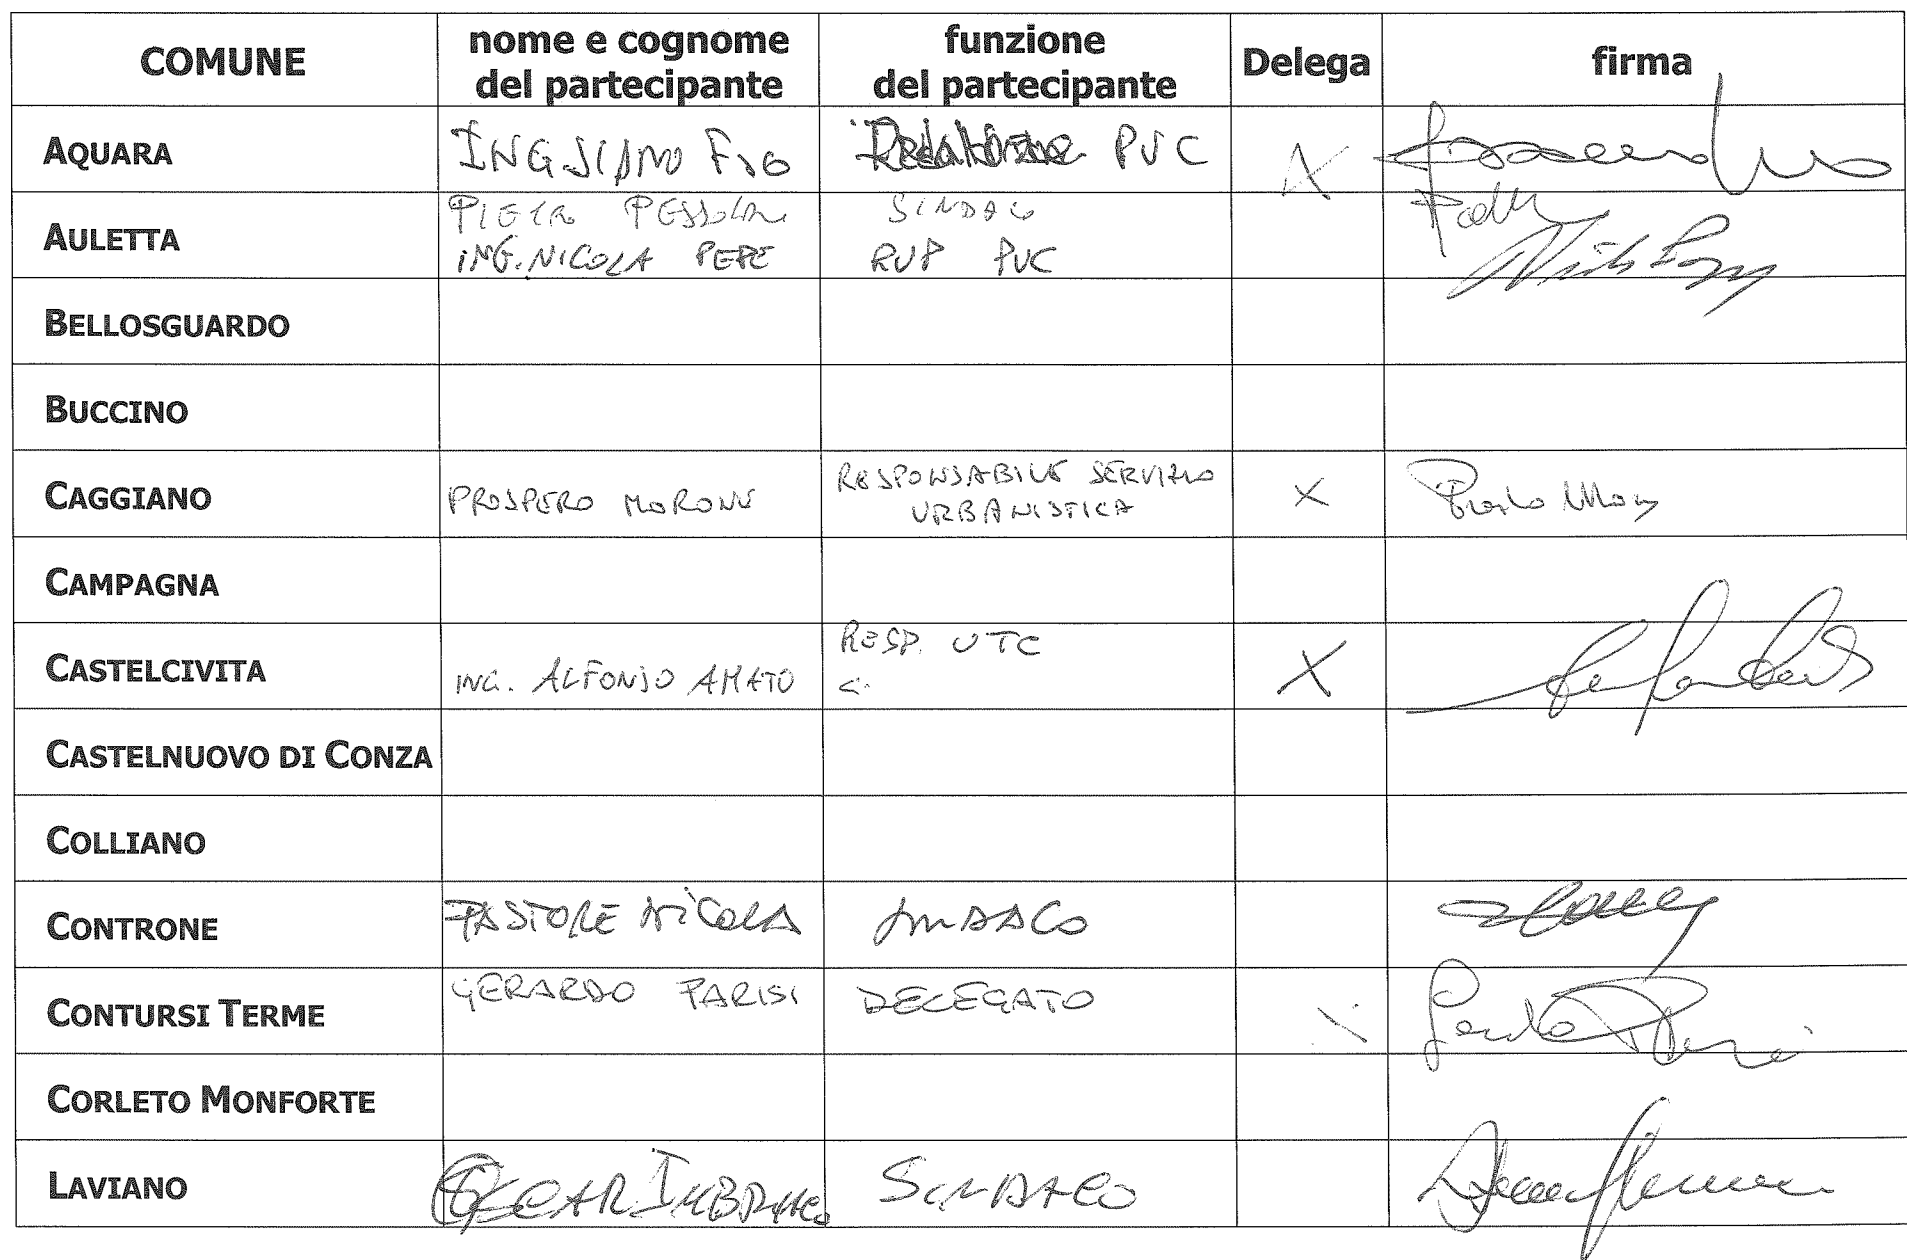 COMUNE nome e cognome del partecipante funzione del partecipante Delega firma
AQUARA PUC X
AULETTA PIETRO SINDACO
ING. NICOLA PEPE RUP PUC
BELLOSGUARDO
BUCCINO
CAGGIANO PROSPERO MORONE RESPONSABILE SERVIZIO URBANISTICA X
CAMPAGNA
CASTELCIVITA ING. ALFONSO AMATO RESP. UTC X
CASTELNUOVO DI CONZA
COLLIANO
CONTRONE PASTORE NICOLA SINDACO
CONTURSI TERME GERARDO PARISI DELEGATO
CORLETO MONFORTE
LAVIANO OSCAR IMBRIACO SINDACO